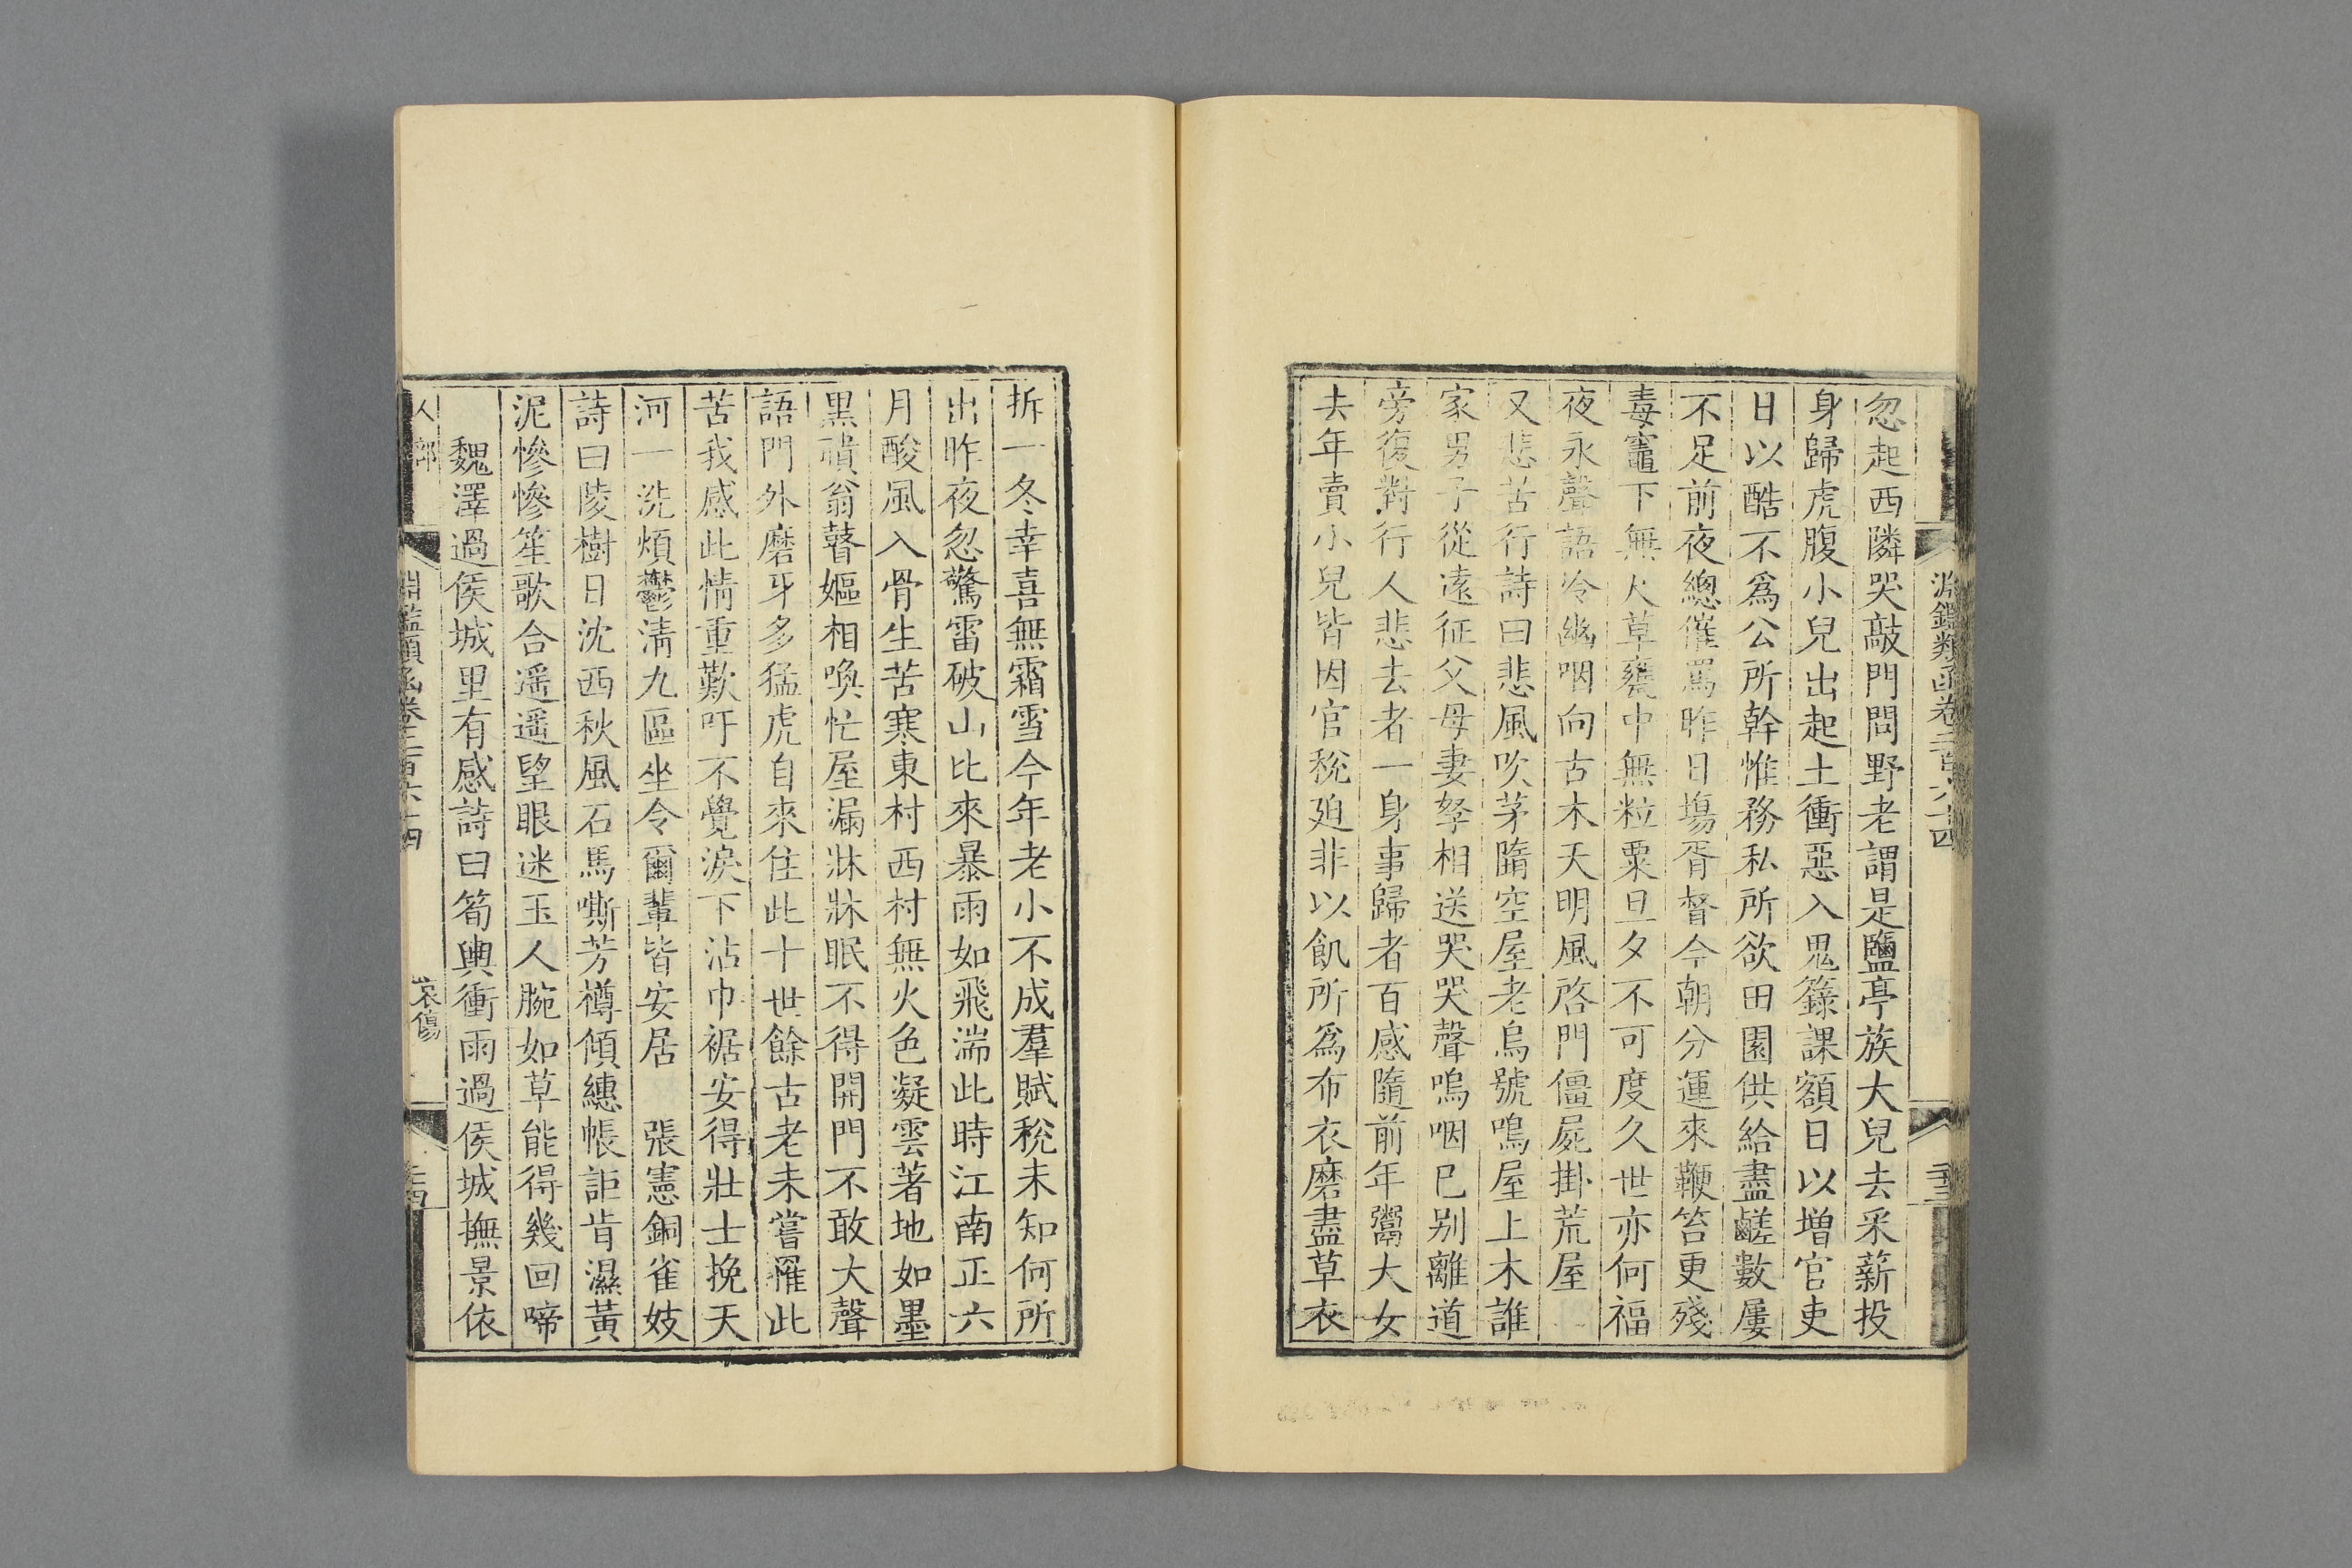 淵鑑類函卷二百六十四
二十三
忽起西隣哭敲門問野老謂是鹽亭族大兒去采薪投
身歸虎腹小兒出起土衝惡入鬼籙課額日以增官吏
日以酷不爲公所幹惟務私所欲田園供給盡鹺數屢
不足前夜總催罵昨日塲胥督今朝分運來鞭笞更殘
毒竈下無尺草甕中無粒粟旦夕不可度久世亦何福
夜永聲語冷幽咽向古木天明風啓門僵屍掛荒屋
又悲苦行詩曰悲風吹茅隋空屋老烏號鳴屋上木誰
家男子從遠征父母妻孥相送哭哭聲嗚咽巳别離道
旁復對行人悲去者一身事歸者百感隨前年鬻大女
去年賣小兒皆因官稅廹非以飢所爲布衣磨盡草衣
拆一冬幸喜無霜雪今年老小不成羣賦稅未知何所
出昨夜忽驚雷破山比來暴雨如飛湍此時江南正六
月酸風入骨生苦寒東村西村無火色凝雲著地如墨
黒聵翁瞽嫗相喚忙屋漏牀牀眠不得開門不敢大聲
語門外磨牙多猛虎自來住此十世餘古老未嘗罹此
苦我感此情重歎吁不覺淚下沾巾裾安得壯士挽天
河一洗煩鬱淸九區坐令爾輩皆安居　張憲銅雀妓
詩曰陵樹日沈西秋風石馬嘶芳樽傾繐帳詎肯濕黃
泥慘慘笙歌合遥遥望眼迷玉人腕如草能得幾回啼
魏澤過侯城里有感詩曰筍輿衝雨過侯城撫景依
人部
淵鑑類函卷二百六十四
哀傷
二十四